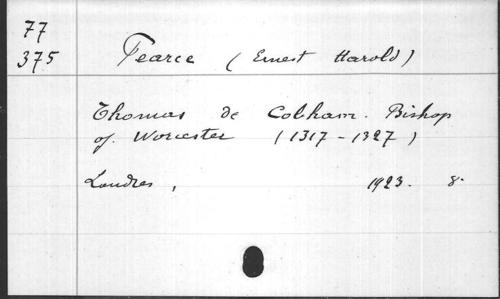 77
375 Pearce (Ernest Harold)
Thomas de Cobham. Bishop
of. Worcester (1317 - 1327)
Londres, 1923. 8.